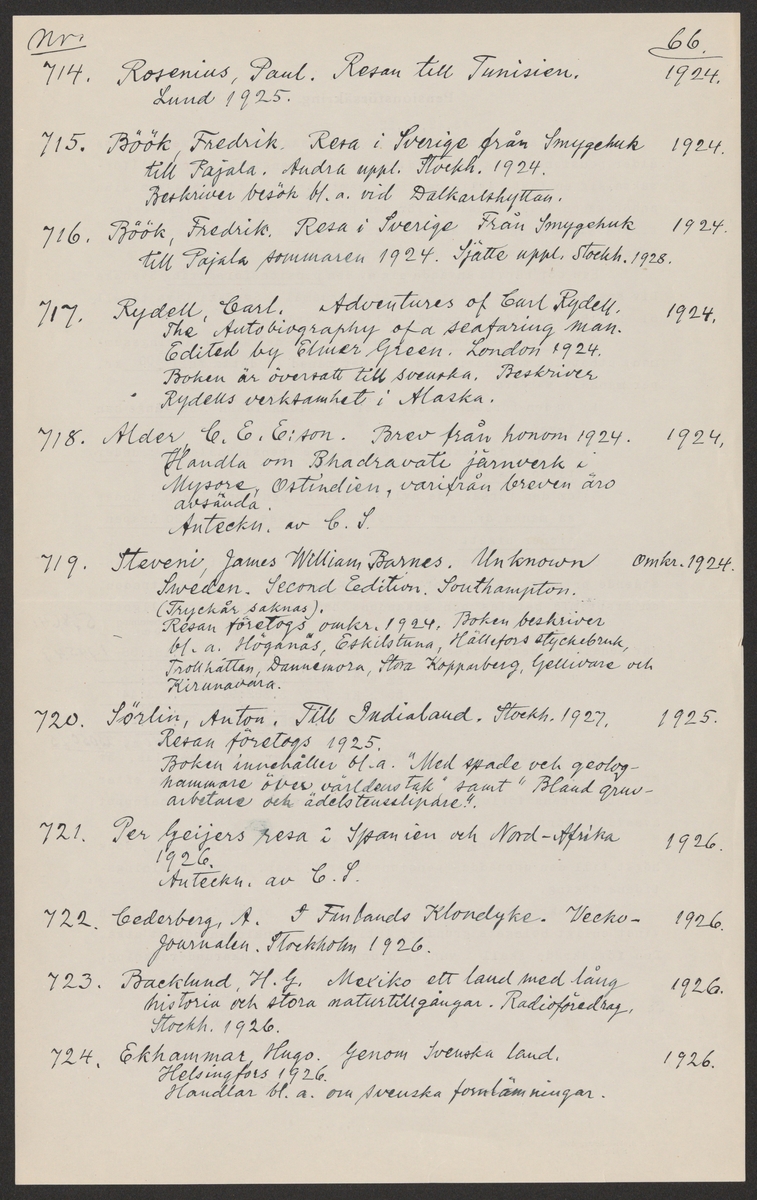 Nr. 66.
714. Rosenius, Paul. Resan till Tunisien. 1924.
Lund 1925.
715. Böök, Fredrik. Resa i Sverige från Smygehuk 1924.
till Pajala. Andra uppl. Stockh. 1924.
Beskriver besök bl. a. vid Dalkarlshyttan.
716. Böök, Fredrik. Resa i Sverige Från Smygehuk 1924.
till Pajala sommaren 1924. Sjätte uppl. Stockh. 1928.
717. Rydell, Carl. Adventures of Carl Rydell. 1924.
The Autobiography of a seafaring man.
Edited by Elmer Green. London 1924.
Boken är översatt till svenska. Beskriver
Rydells verksamhet i Alaska.
718. Alder, C. E. E:son. Brev från honom 1924. 1924.
Handla om Bhadravati järnverk i
Mysore, Ostindien, varifrån breven äro
avsända.
Anteckn. av C. S.
719. Steveni, James William Barnes. Unknown Omkr. 1924.
Sweden. Second Eedition. Southampton.
(Tryckår saknas).
Resan företogs omkr. 1924. Boken beskriver
bl. a. Höganäs, Eskilstuna, Hällefors styckebruk,
Trollhättan, Dannemora, Stora Kopparberg, Gellivare och
Kirunavara.
720. Sörlin, Anton. Till Indialand. Stockh. 1927. 1925.
Resan företogs 1925.
Boken innehåller bl. a. "Med spade och geolog-
hammare över världens tak" samt "Bland gruv-
arbetare och ädelstensslipare".
721. Per Geijers resa i Spanien och Nord-Afrika 1926.
1926.
Anteckn. av C. S.
722. Cederberg, A. I Finlands Klondyke. Vecko- 1926.
Journalen. Stockholm 1926.
723. Backlund, H. G. Mexiko ett land med lång 1926.
historia och stora naturtillgångar. Radioföredrag.
Stockh. 1926.
724. Ekhammar, Hugo. Genom Svenska land. 1926.
Helsingfors 1926.
Handlar bl. a. om svenska fornlämningar.